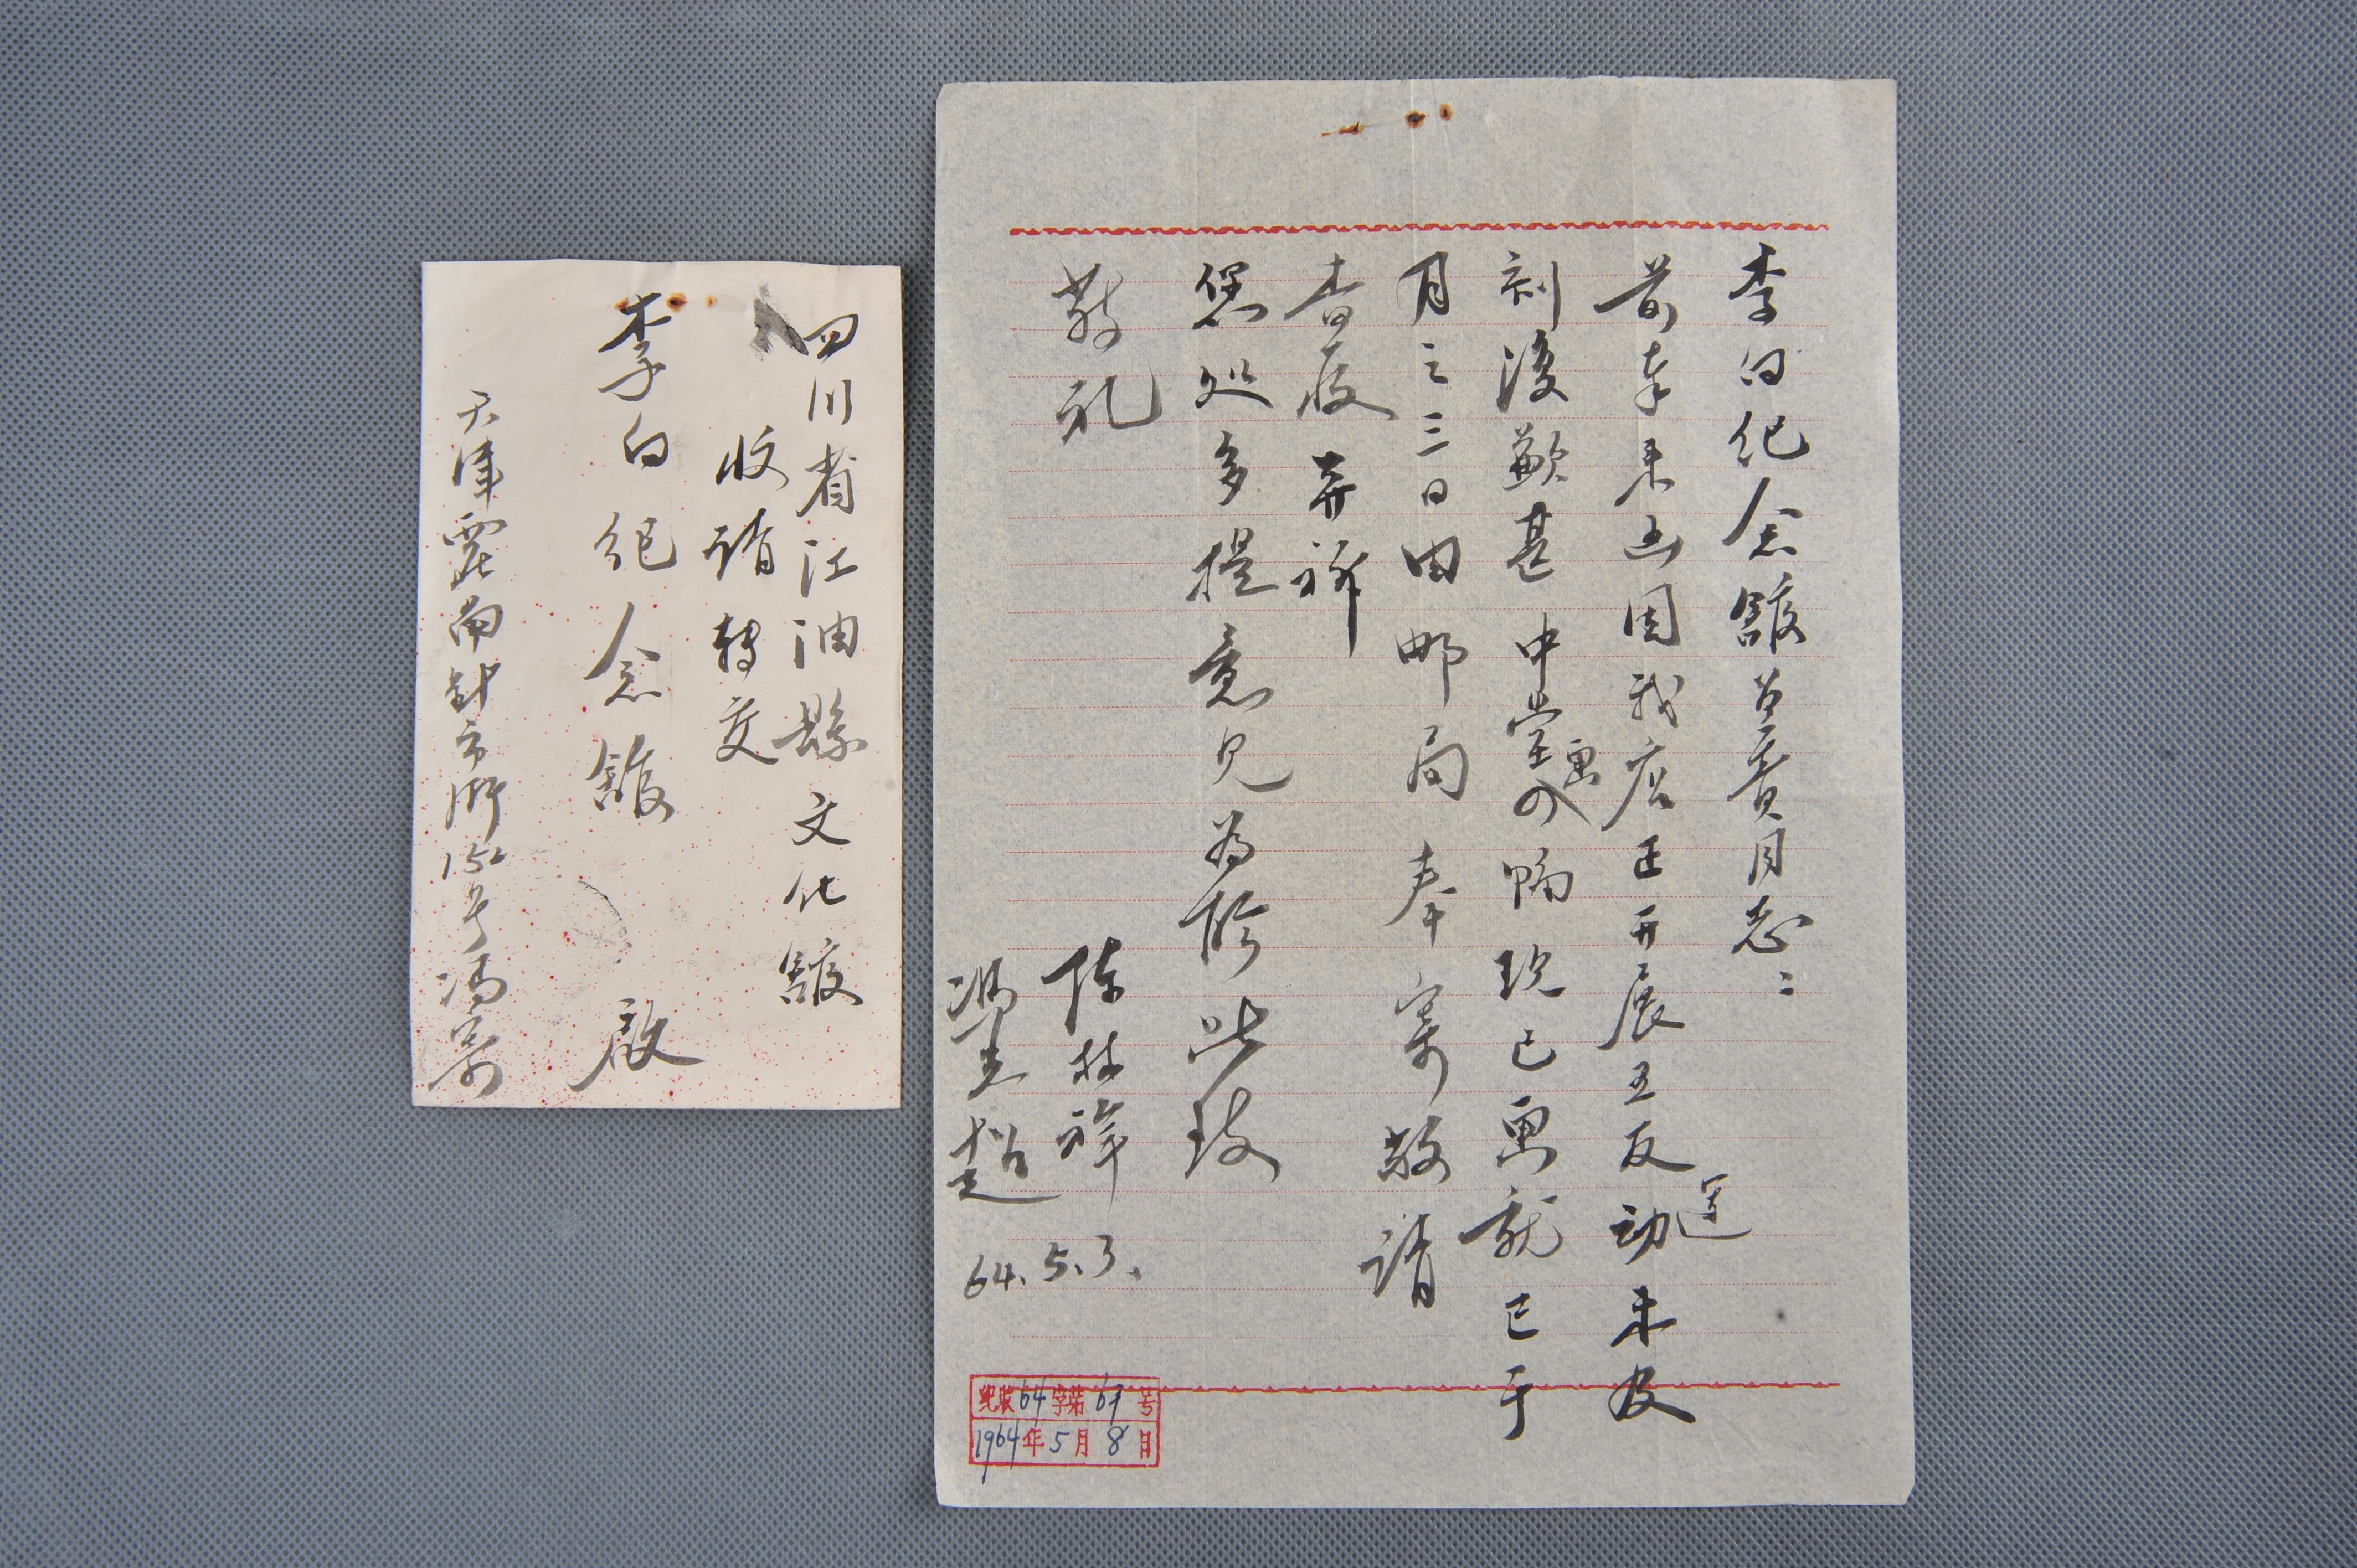 李白纪念舘負責同志：
前奉来函因我店正开展五反运动未及
刻復歉甚中堂画四幅现已画就已于
月之三日由邮局奉寄敬請
查收并祈
您处多提意见为盼此致
敬礼
陈林祥
冯超
64.5.3.
纪收64字第67号
1964年5月8日
四川省江油縣文化舘
收請转交
李白纪念舘 啟
天津南针市街152号冯寄